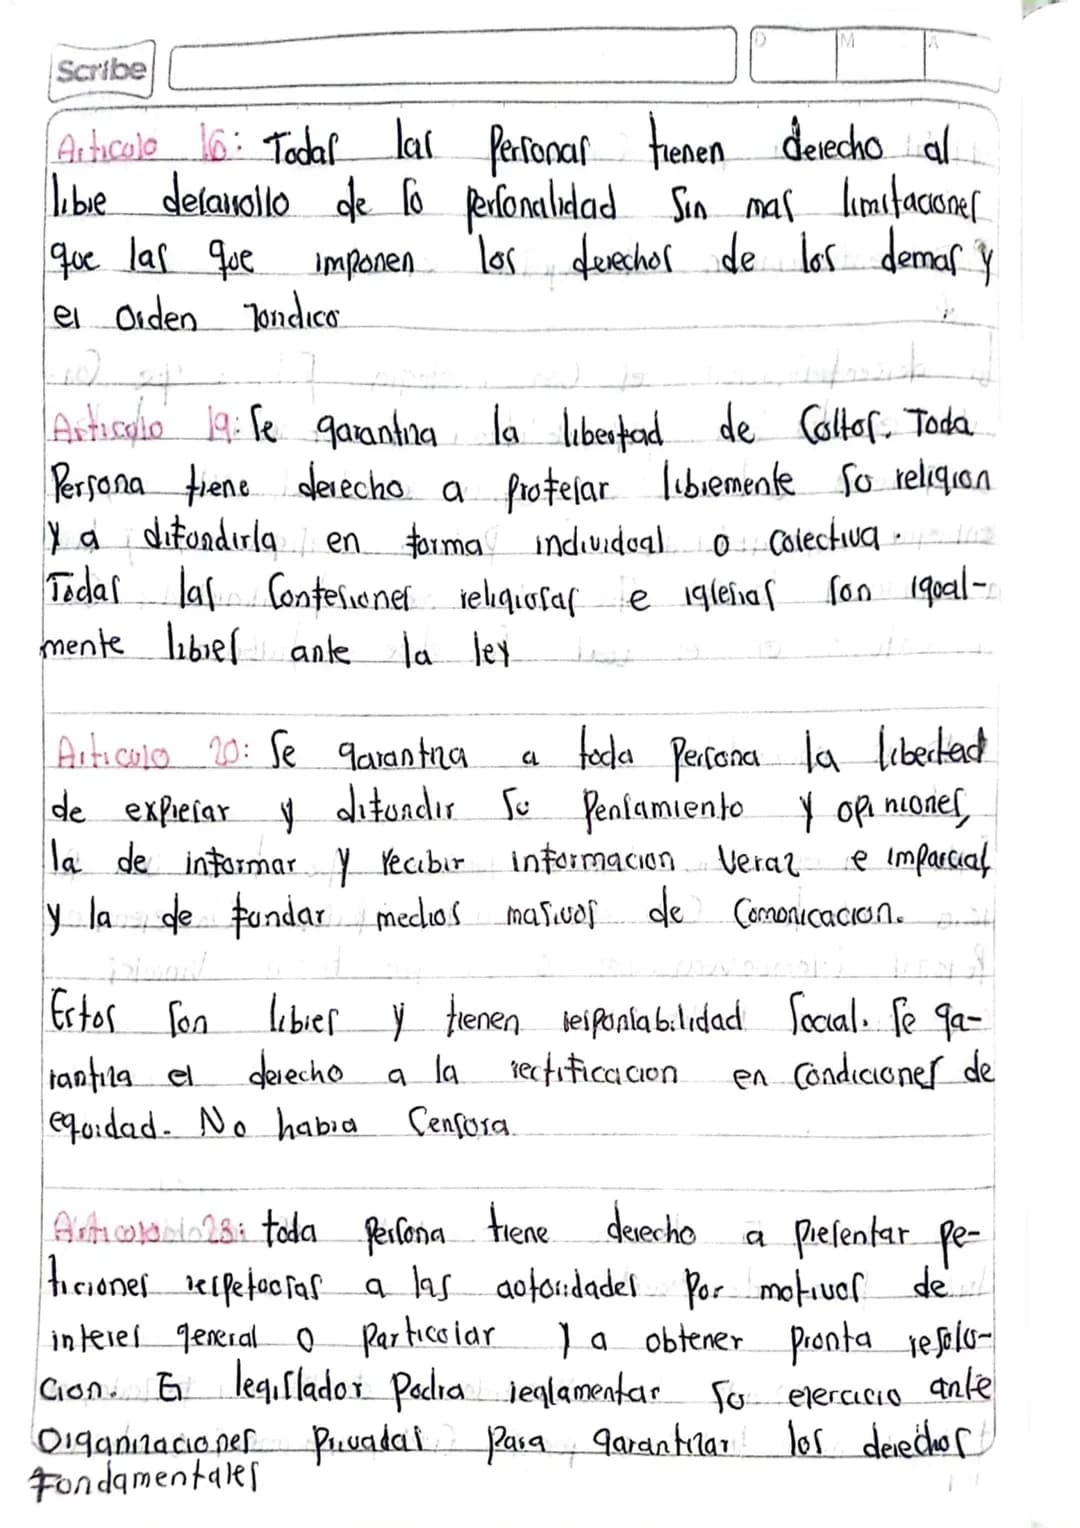 Scribe
D M A
Articulo 16: Todas las Personas tienen derecho al
libre desarrollo de la personalidad Sin mas limitaciones
que las que imponen los derechos de los demas y
el Orden Juridico
Articulo 19: Se garantiza la libertad de Cultos. Toda
Persona tiene derecho a profesar libremente Su religion
y a difundirla en forma individual o Colectiva.
Todas las Confesiones religiosas e iglesias son igual-
mente libres ante la ley
Articulo 20: Se garantiza a toda Persona la libertad
de expresar y difundir Su Pensamiento y opiniones,
la de informar y recibir informacion Veraz e imparcial,
y la de fundar medios masivos de Comunicacion.
Estos Son libres y tienen responsabilidad Social. Se ga-
rantiza el derecho a la rectificacion en Condiciones de
equidad. No habra Censura.
Articulo 23: toda persona tiene derecho a presentar pe-
ticiones respetuosas a las autoridades Por motivos de
interes general o Particular y a obtener pronta resolu-
cion. El legislador Podra reglamentar Su ejercicio ante
Organizaciones Privadas para garantizar los derechos
Fundamentales